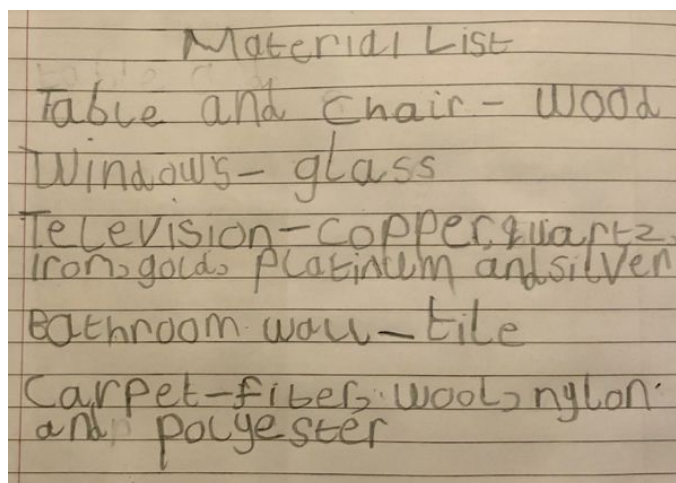 Material List
Table and Chair - Wood
Windows - glass
Television - copper, quartz,
Iron, gold, platinum and silver
Bathroom wall - tile
Carpet - fiber, wool, nylon
and polyester